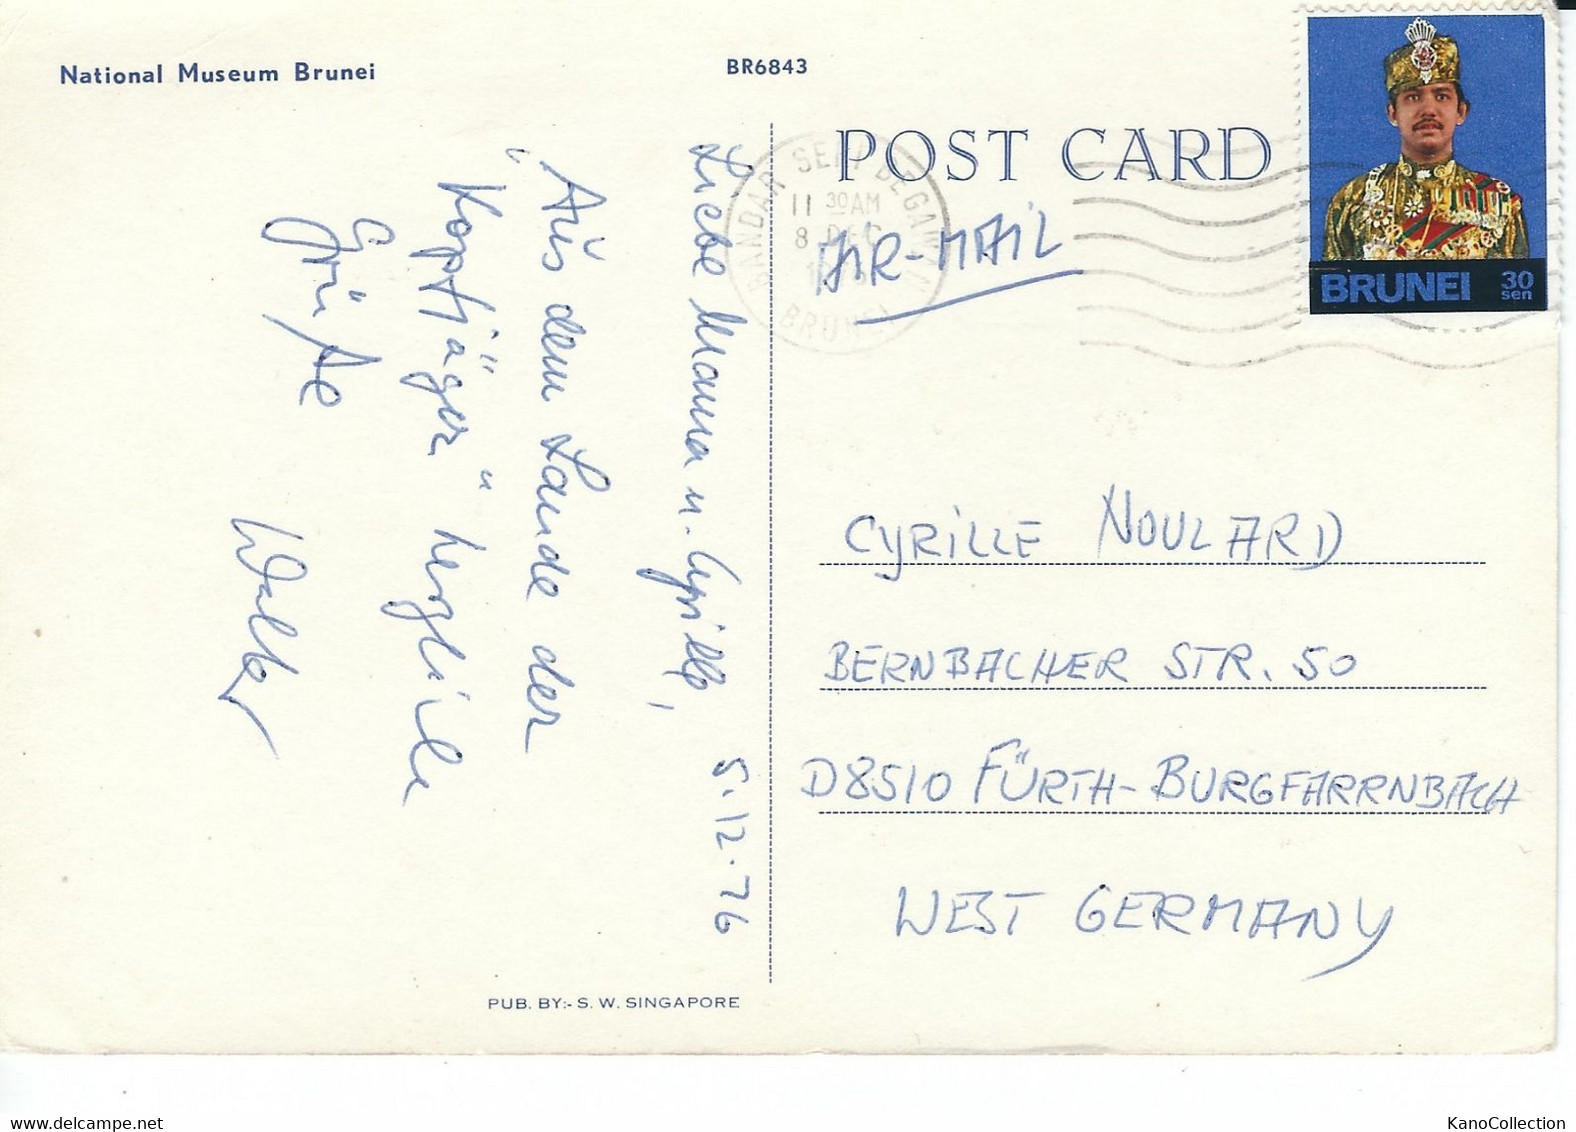 National Museum Brunei
BR6843
POST CARD
BANDAR SERI BEGAWAN
11 30AM
8 DEC
BRUNEI
AIR-MAIL
BRUNEI 30
sen
5.12.76
Liebe Mama u. Cyrille,
„Aus dem Lande der
Kopfjäger" herzliche
Grüße
Walter
CYRILLE NOULARD
BERNBACHER STR. 50
D8510 FÜRTH-BURGFARRNBACH
WEST GERMANY
PUB. BY:- S. W. SINGAPORE
www.delcampe.net
KanoCollection